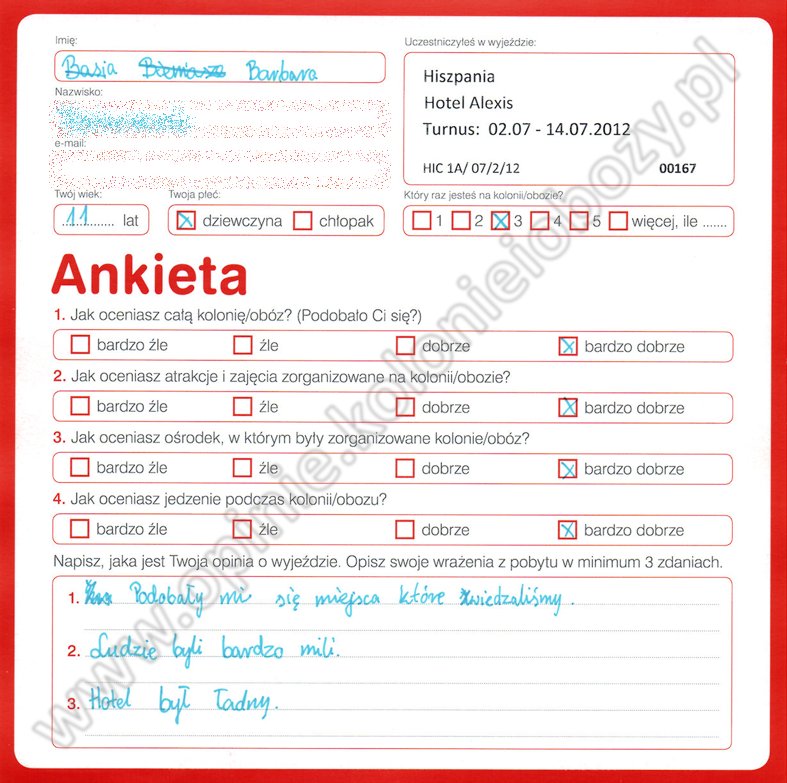 Imię:
Basia Barbara
Uczestniczyłeś w wyjeździe:
Hiszpania
Hotel Alexis
Turnus: 02.07 - 14.07.2012
HIC 1A/ 07/2/12 00167
Nazwisko:
e-mail:
Twój wiek: Twoja płeć: Który raz jesteś na kolonii/obozie?
11 lat dziewczyna chłopak 1 2 3 4 5 więcej, ile .......
Ankieta
1. Jak oceniasz całą kolonię/obóz? (Podobało Ci się?)
bardzo źle źle dobrze bardzo dobrze
2. Jak oceniasz atrakcje i zajęcia zorganizowane na kolonii/obozie?
bardzo źle źle dobrze bardzo dobrze
3. Jak oceniasz ośrodek, w którym były zorganizowane kolonie/obóz?
bardzo źle źle dobrze bardzo dobrze
4. Jak oceniasz jedzenie podczas kolonii/obozu?
bardzo źle źle dobrze bardzo dobrze
Napisz, jaka jest Twoja opinia o wyjeździe. Opisz swoje wrażenia z pobytu w minimum 3 zdaniach.
1. Podobały mi się miejsca które zwiedzaliśmy.
2. Ludzie byli bardzo mili.
3. Hotel był ładny.
www.opinie.kolonieiobozy.pl